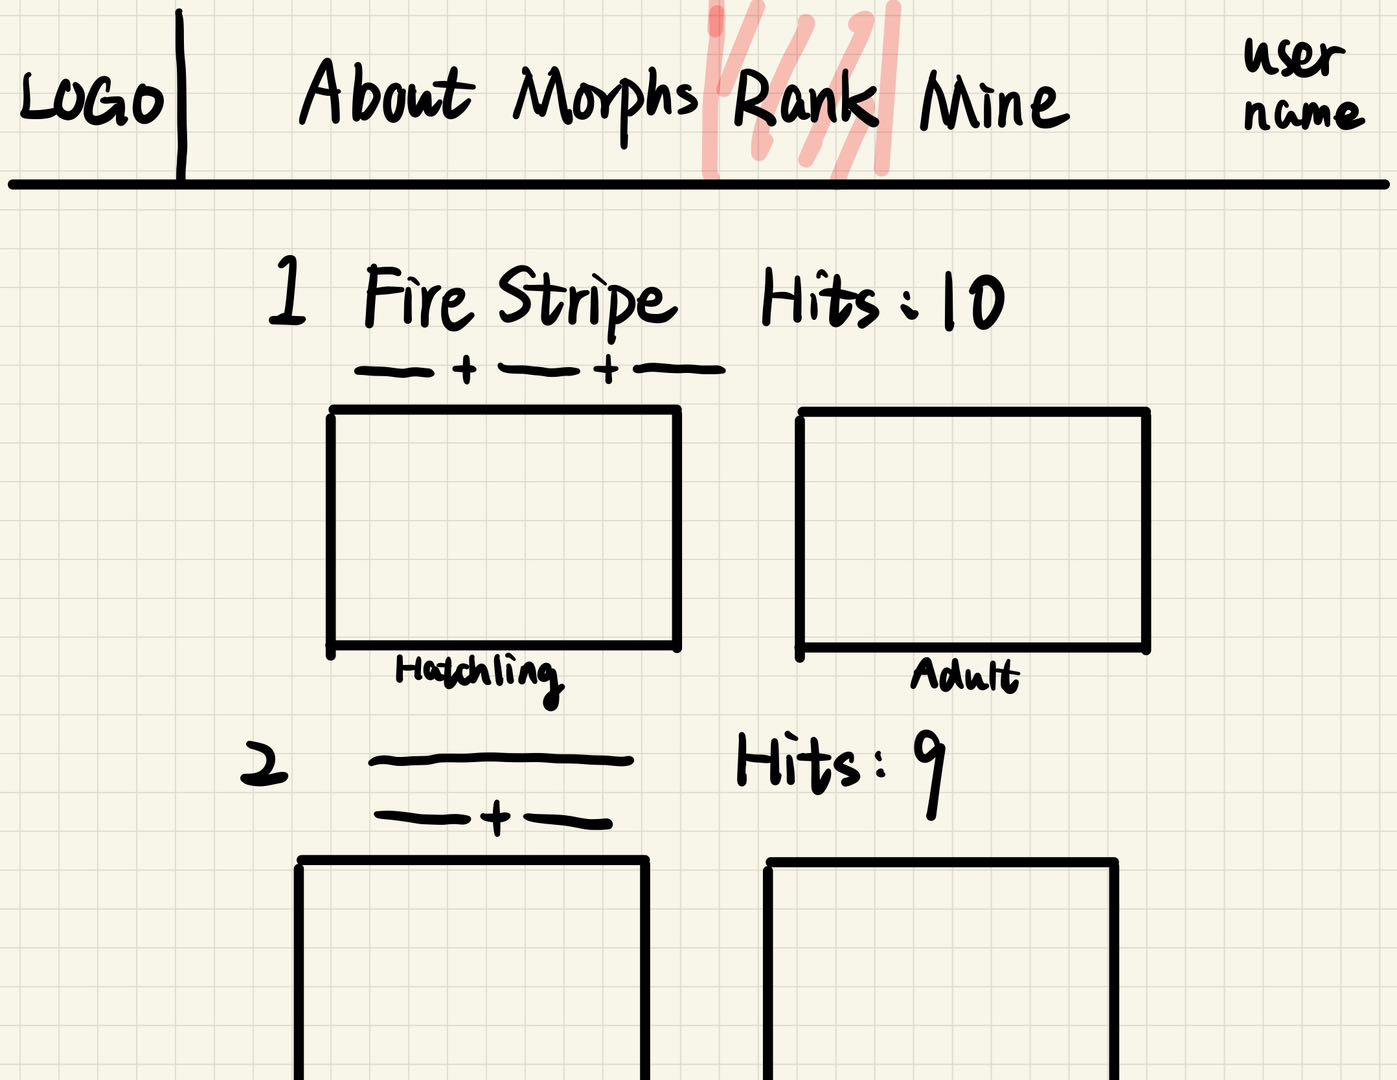 LOGO About Morphs Rank Mine user name
1 Fire Stripe Hits: 10
+ +
Hatchling Adult
2 Hits: 9
+